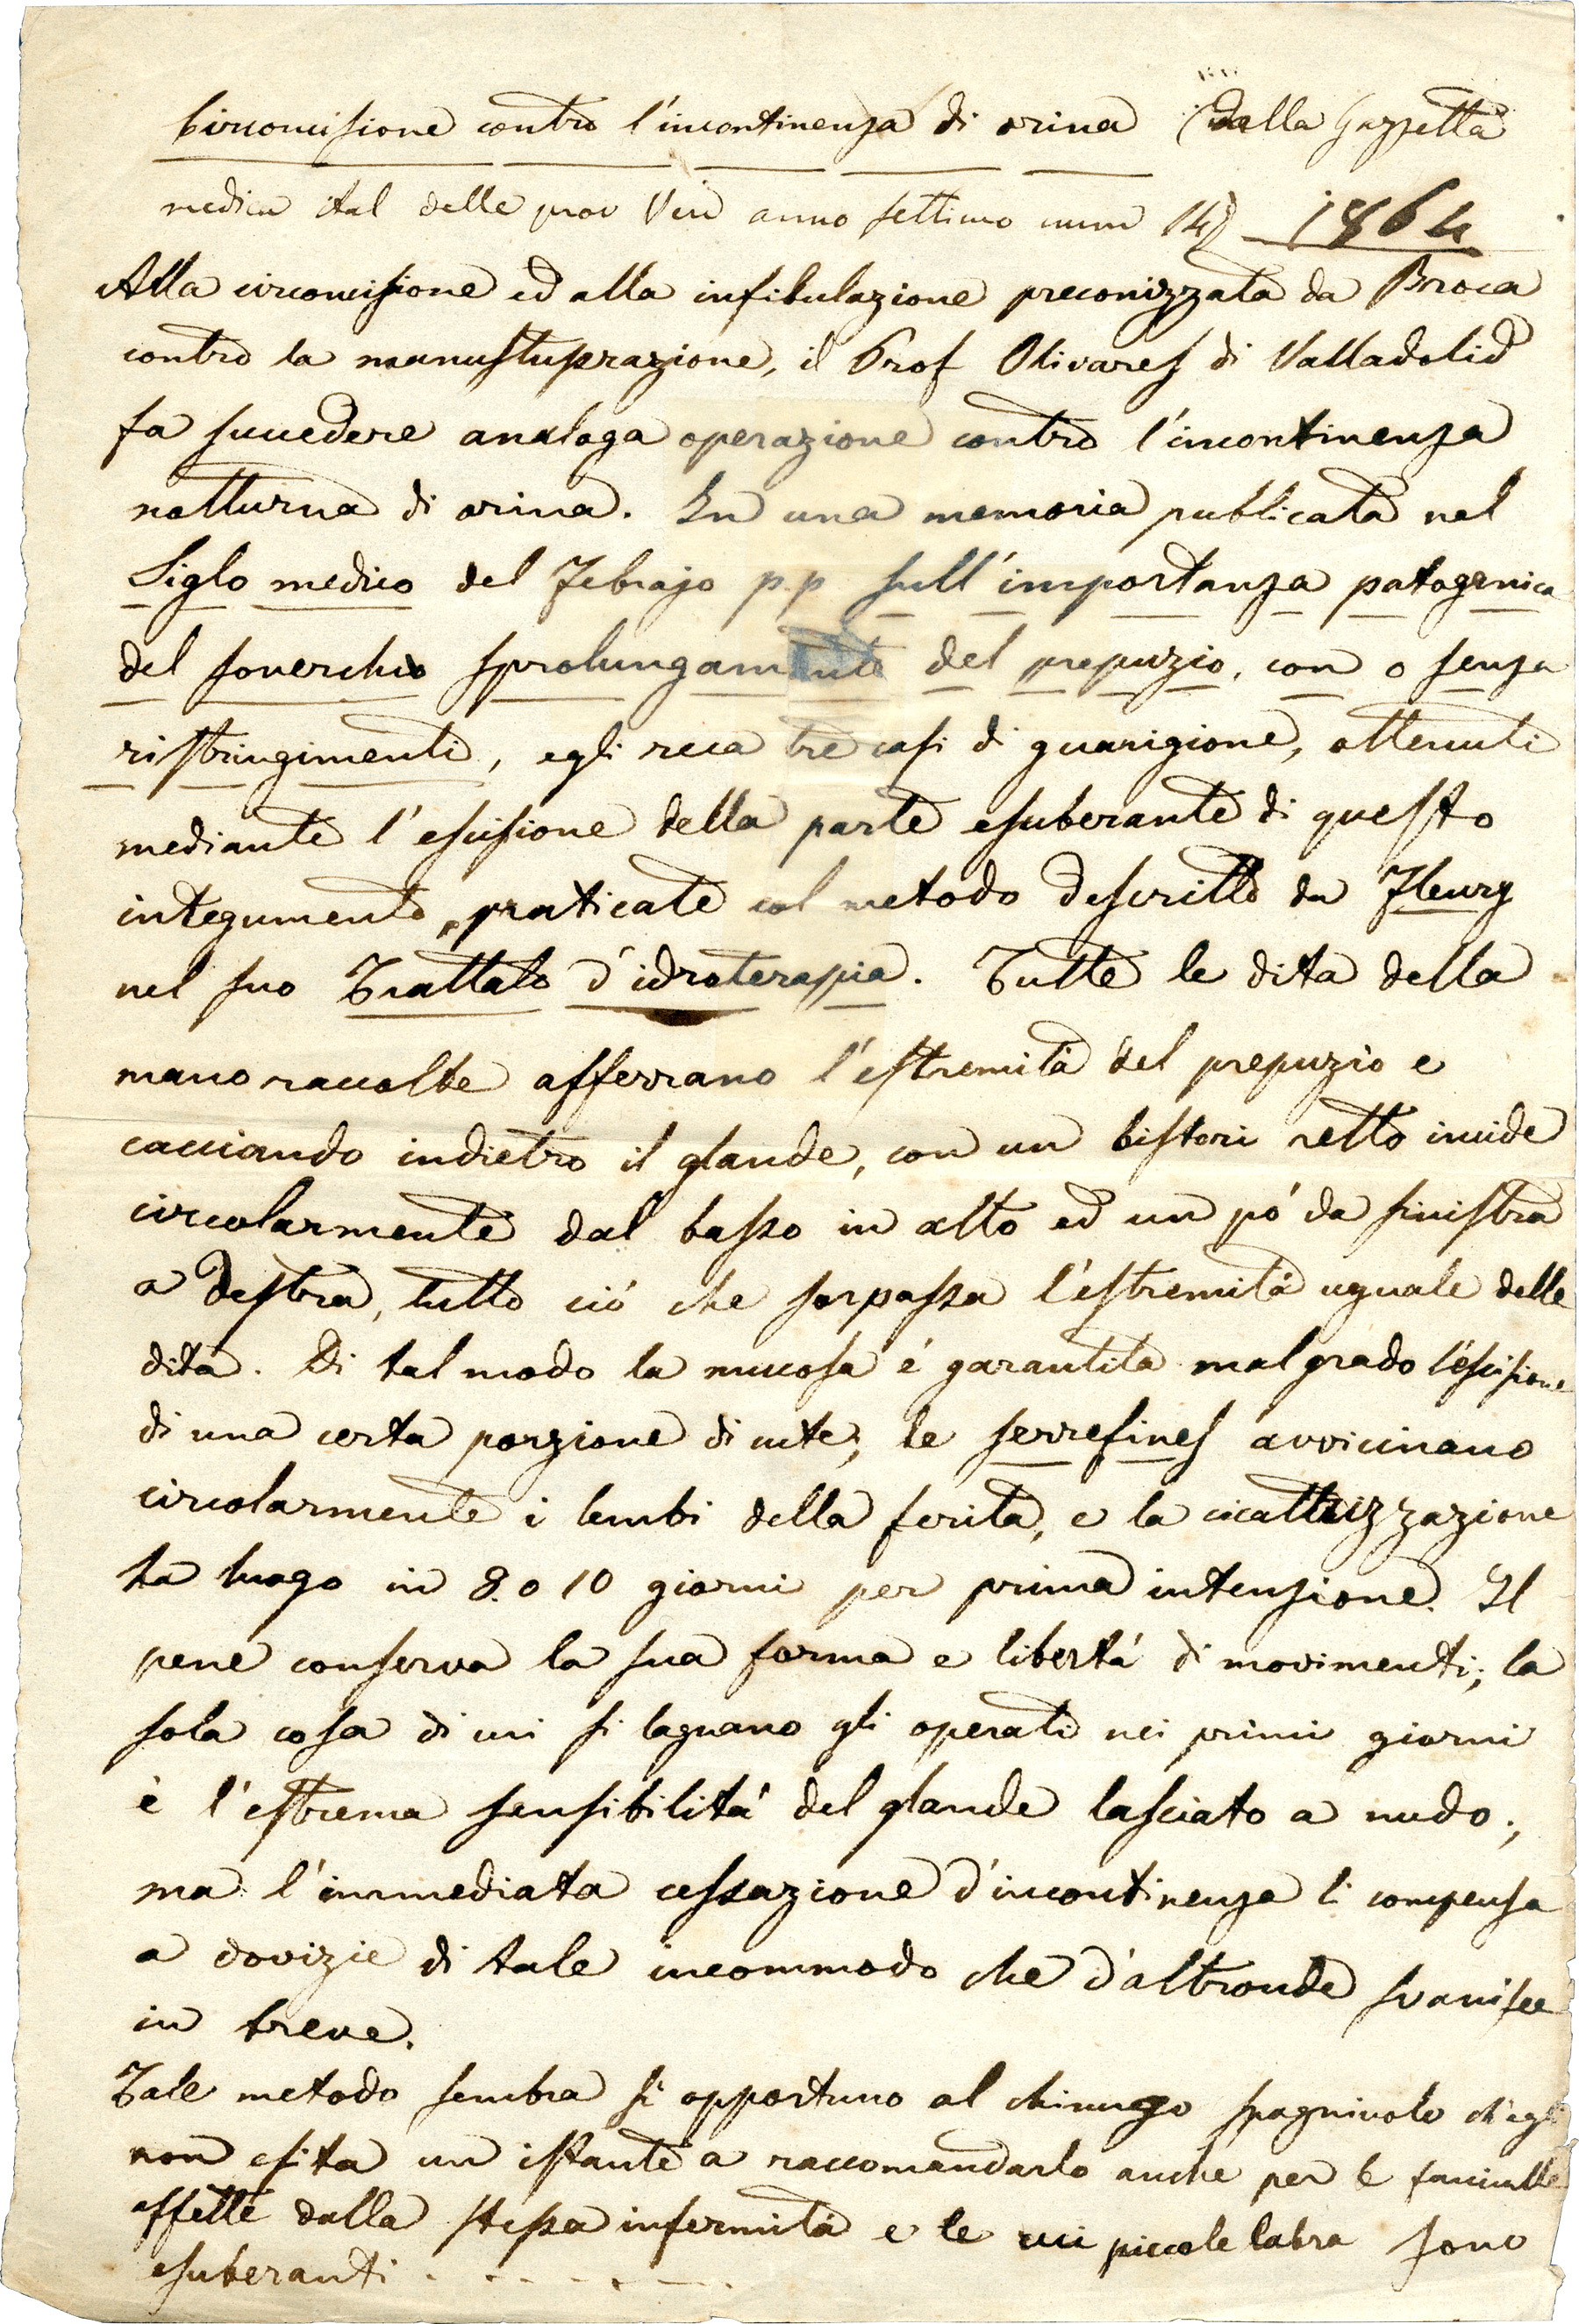 Circoncisione contro l'incontinenza di orina (dalla Gazzetta
medica ital delle prov Ven anno settimo num 14) 1864
Alla circoncisione ed alla infibulazione preconizzata da Broca
contro la manustuprazione, il Prof Olivares di Valladolid
fa succedere analoga operazione contro l'incontinenza
notturna di orina. In una memoria publicata nel
Siglo medico del Febrajo p.p sull'importanza patogenica
del soverchio sprolungamento del prepuzio, con o senza
ristringimenti, egli reca tre casi di guarigione, ottenuti
mediante l'escisione della parte esuberante di questo
integumento, praticate col metodo descritto da Fleury
nel suo Trattato d'idroterapia. Tutte le dita della
mano raccolte afferrano l'estremità del prepuzio e
cacciando indietro il glande, con un bistori retto incide
circolarmente dal basso in alto ed un pó da sinistra
a destra, tutto ció che sorpassa l'estremitá uguale delle
dita. Di tal modo la mucosa é garantita malgrado l'escisione
di una certa porzione di cute; le serrefines avvicinano
circolarmente i lembi della ferita, e la cicattrizzazione
ha luogo in 8. o 10 giorni per prima intenzione. Il
pene conserva la sua forma e libertá di movimenti; la
sola cosa di cui si lagnano gli operati nei primi giorni
è l'estrema sensibilitá del glande lasciato a nudo;
ma l'immediata cessazione d'incontinenza li compensa
a dovizie di tale incommodo che d'altronde svanisce
in breve.
Tale metodo sembra sì opportuno al chirurgo spagnuolo ch'egli
non esita un istante a raccomandarlo anche per le fanciulle
affette dalla stessa infermitá e le cui piccole labra sono
esuberanti . - . - - . - - .